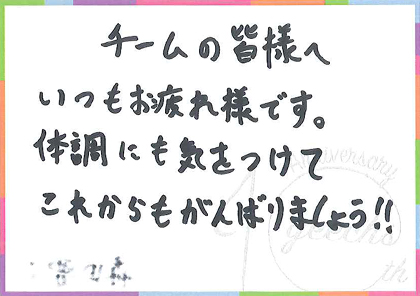 チームの皆様へ
いつもお疲れ様です。
体調にも気をつけて
これからもがんばりましょう!!
Anniversary
10
th